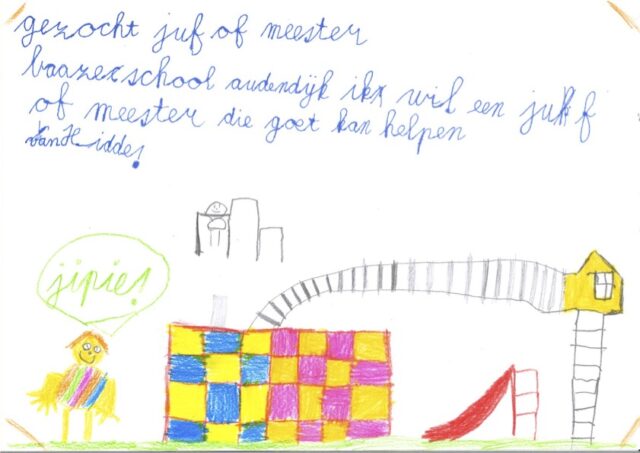 gezocht juf of meester
baazerschool audendijk ikx wil een jukf
of meester die goet kan helpen
van Hidde!
jipie!